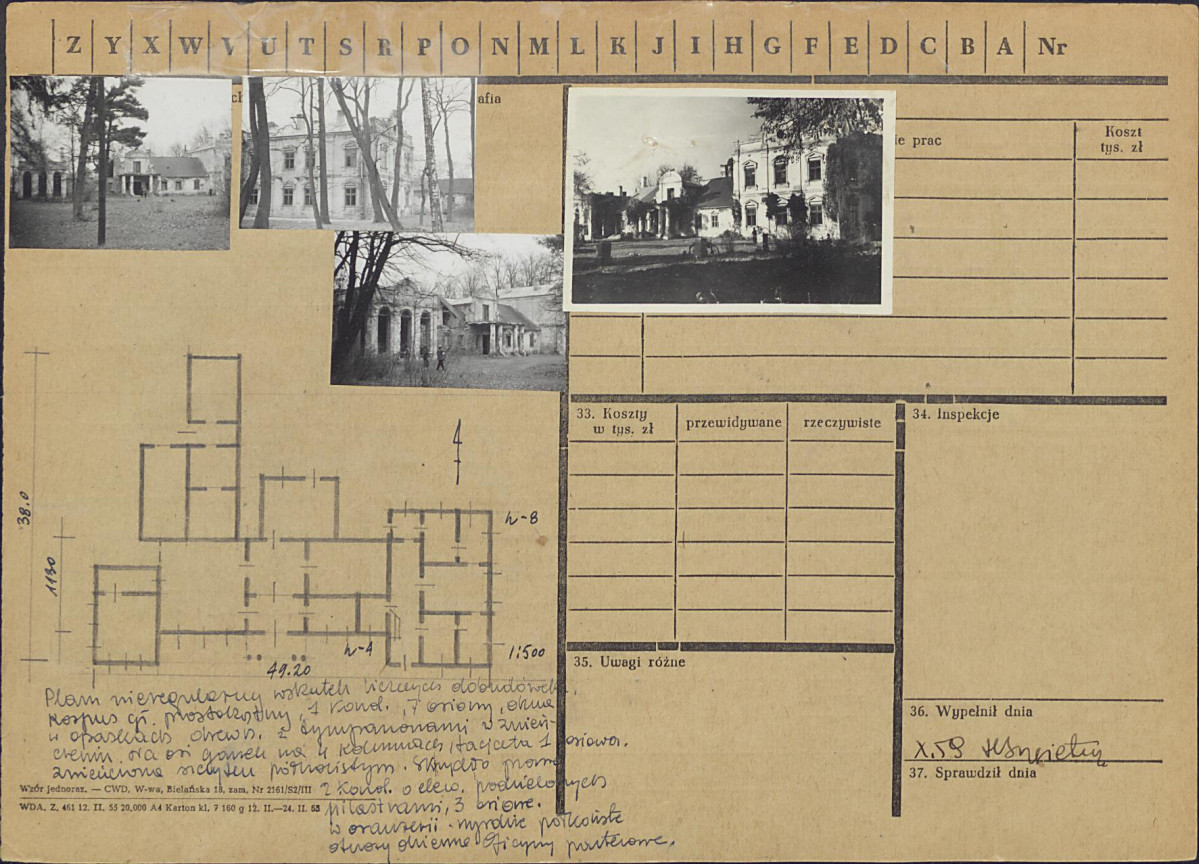 Z Y X W V U T S R P O N M L K J I H G F E D C B A Nr
afia
ie prac
Koszt
tys. zł
33. Koszty
w tys. zł
przewidywane
rzeczywiste
34. Inspekcje
38.0
1130
h-8
h-4
1:500
49.20
Plan nieregularny wskutek licznych dobudówek.
Korpus gł. prostokątny, 1 kond., 7 osiowy, okna
w opaskach drewn. z tympanonami w zwień-
czeniu. Na osi ganek na 4 kolumnach, facjatka 1 osiowa.
zwieńczona szczytem półkolistym. Skrzydło prawe
2 kond. o elew. podzielonych
pilastrami, 3 osiowe.
W oranżerii półkoliste
otwory okienne. Oficyny parterowe.
35. Uwagi różne
36. Wypełnił dnia
X.59
37. Sprawdził dnia
Wzór jednoraz. — CWD, W-wa, Bielańska 18, zam. Nr 2161/S2/III
WDA, Z. 461 12. II. 55 20.000 A4 Karton kl. 7 160 g 12. II.—24. II. 55